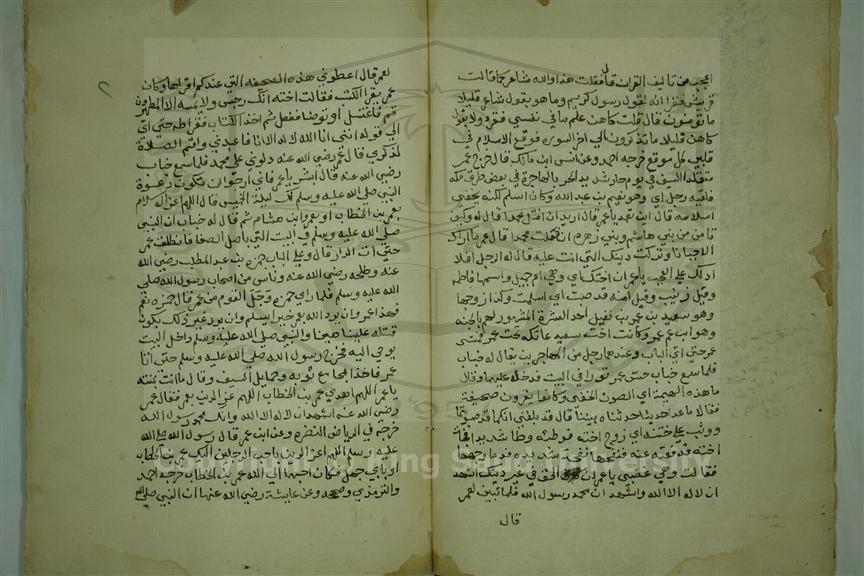 اعجب من تاليف القران قال فقلت هذا والله شاعر كما قالت
قريش فقرا انه لقول رسول كريم وما هو بقول شاعر قليلا
ما تؤمنون قال قلت كاهن علم ما في نفسي فقرا ولا بقول
كاهن قليلا ما تذكرون الي اخر السورة فوقع الاسلام في
قلبي كل موقع خرجه احمد وعن انس ابن مالك قال خرج عمر
متقلدا السيف في يوم حار شديد الحر بالهاجرة في بعض طرق مكة
فلقيه رجل اي وهو نعيم بن عبد الله وكان اسلم لكنه يخفي
اسلامه قال اين تعمد يا عمر قال اريد ان اقتل محمدا قال له وكيف
تامن من بني هاشم وبني زهرة ان قتلت محمدا قال عمر ما اراك
الا صبانا وتركت دينك التي انت عليه قال له الرجل افلا
ادلك علي العجب يا عمر ان اختك اي وهي ام جميل واسمها فاطمة
وقيل زينب وقيل امنه قد صبت اي اسلمت وكذا زوجها
وهو سعيد بن عمر بن نفيل احد العشرة المشهود لهم بالجنة
وهو ابن عم عمر وكانت اخت سعيد عاتكه تحت عمر فمشي
عمر حتي اتي الباب وعندهما رجل من المهاجرين يقال له خباب
فلما سمع خباب حس عمر توارا في البيت فدخل عليهما وقال
ما هذه الهيمة اي الصوت الخفي وكانوا يقرون صحيفة
فقالا ما عدا حديثا حدثناه بيننا قال قد بلغني انكما قد صبيتما
ووثب علي ختنه اي زوج اخته فوطئه وطا شديدا فجاءت
اخته فدفعته عنه فنفحها نفحة شديده فدما وجهها
فقالت وهي غضبي يا عمر ان الحق في غير دينك اشهد
ان لا اله الا الله واشهد ان محمد رسول الله فلما تبين لعمر
قال
لعمر قال اعطوني هذه الصحيفه التي عندكم اقراها وكان
عمر يقرا الكتب فقالت اخته انك رجس ولا يمسه الا المطهرون
قم فاغتسل او توضا ففعل ثم اخذ الكتاب فقرا طه حتي اتي
الي قوله انني انا الله لا اله الا انا فاعبدني واقم الصلاة
لذكري قال عمر رضي الله عنه دلوني علي محمد فلما سمع خباب
رضي الله عنه قال ابشر يا عمر فاني ارجوا ان تكون دعوة
النبي صلي الله عليه وسلم لك ليلة الخميس قال اللهم اعز الاسلام
بعمر بن الخطاب او بعمرو ابن هشام ثم قال له خباب ان النبي
صلي الله عليه وسلم في البيت التي باصل الصفا فانطلق عمر
حتي ات الدار قال وعلي الباب حمزه بن عبد المطلب رضي الله
عنه وطلحه رضي الله عنه وناس من اصحاب رسول الله صلي
الله عليه وسلم فلما راي حمزه وجل القوم من عمر قال حمزه نعم
فهذا عمر وان يرد الله به خيرا يسلم وان يرد غير ذلك يكون
قتله علينا هينا والنبي صلي الله عليه وسلم داخل البيت
يوحي اليه فخرج رسول الله صلي الله عليه وسلم حتي اتا
عمر فاخذ بمجامع ثوبه وحمايل السيف وقال ما انت بمنته
يا عمر اللهم اهدي عمر بن الخطاب اللهم عز الدين بعمر فقال عمر
رضي الله عنه اشهد ان لا اله الا الله وانك محمد رسول الله
خرجه في الرياض النضره وعن ابن عمر قال رسول الله صلي الله
عليه وسلم اللهم اعز الدين باحب الرجلين اليك عمر بن الخطاب
او بابي جهل فكان احبهما الي الله عمر بن الخطاب خرجه احمد
والترمذي وصححه وعن عايشة رضي الله عنها ان النبي صلي الله